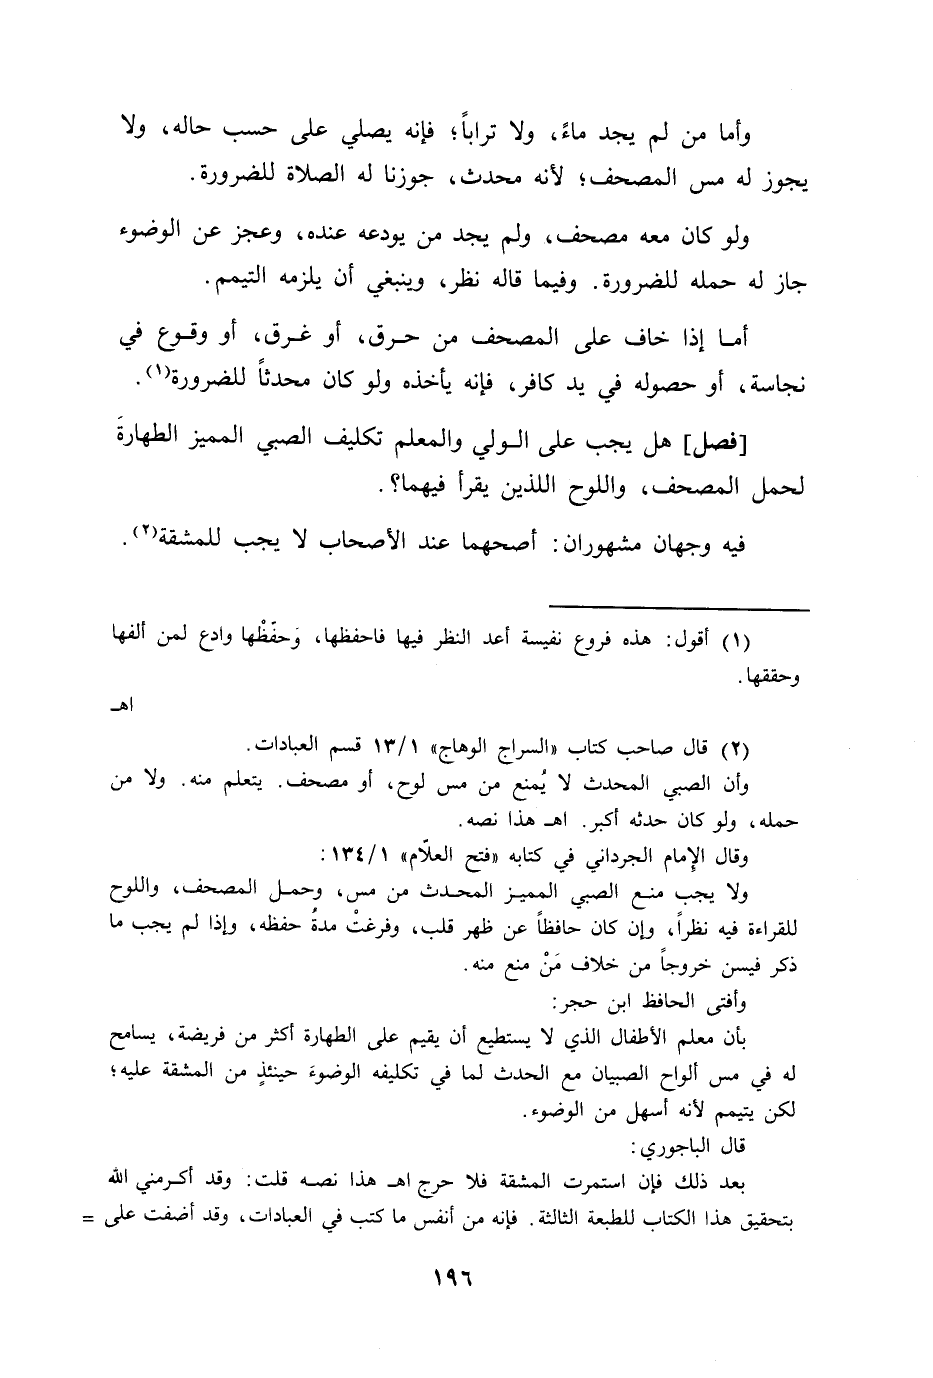 وأما من لم يجد ماءً، ولا تراباً؛ فإنه يصلي على حسب حاله، ولا
يجوز له مس المصحف؛ لأنه محدث، جوزنا له الصلاة للضرورة.
ولو كان معه مصحف، ولم يجد من يودعه عنده، وعجز عن الوضوء
جاز له حمله للضرورة. وفيما قاله نظر، وينبغي أن يلزمه التيمم.
أمـا إذا خاف على المصحف من حـرق، أو غـرق، أو وقـوع في
نجاسة، أو حصوله في يد كافر، فإنه يأخذه ولو كان محدثاً للضرورة(١).
[فصل] هل يجب على الـولي والمعلم تكليف الصبي المميز الطهارةَ
لحمل المصحف، واللوح اللذين يقرأ فيهما؟.
فيه وجهان مشهوران: أصحهما عند الأصحاب لا يجب للمشقة(٢).
(١) أقول: هذه فروع نفيسة أعد النظر فيها فاحفظها، وَحفّظْها وادع لمن ألفها
وحققها.
اهـ
(٢) قال صاحب كتاب «السراج الوهاج» ١٣/١ قسم العبادات.
وأن الصبي المحدث لا يُمنع من مس لوح، أو مصحف. يتعلم منه. ولا من
حمله، ولو كان حدثه أكبر. اهـ هذا نصه.
وقال الإمام الجرداني في كتابه «فتح العلاّم» ١٣٤/١:
ولا يجب منـع الصبي المميـز المحـدث من مس، وحمـل المصحـف، واللوح
للقراءة فيه نظراً، وإن كان حافظاً عن ظهر قلب، وفرغتْ مدةُ حفظه، وإذا لم يجب ما
ذكر فيسن خروجاً من خلاف مَنْ منع منه.
وأفتى الحافظ ابن حجر:
بأن معلم الأطفال الذي لا يستطيع أن يقيم على الطهارة أكثر من فريضة، يسامح
له في مس ألواح الصبيان مع الحدث لما في تكليفه الوضوءَ حينئذٍ من المشقة عليه؛
لكن يتيمم لأنه أسهل من الوضوء.
قال الباجوري:
بعد ذلك فإن استمرت المشقة فلا حرج اهـ هذا نصـه قلت: وقد أكـرمني الله
بتحقيق هذا الكتاب للطبعة الثالثة. فإنه من أنفس ما كتب في العبادات، وقد أضفت على =
١٩٦